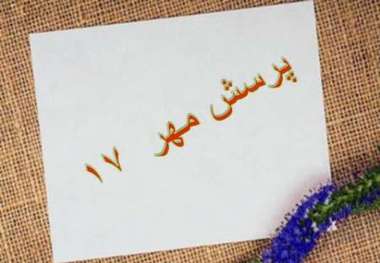 پرسش مهر ۱۷